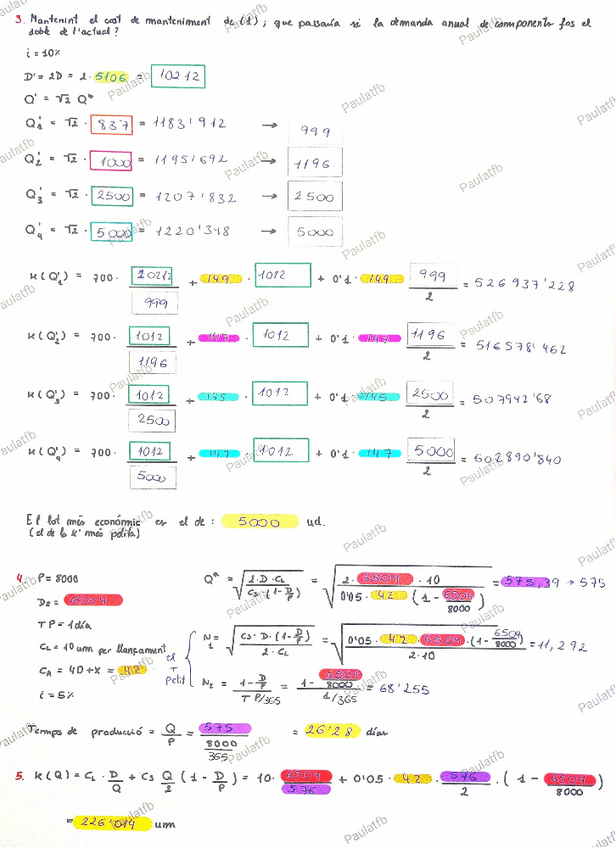 3. Mantenint el cost de manteniment de (1), que passaria si la demanda anual de components fos el
doble de l'actual?
i = 10%
D' = 2D = 2 · 5106 = 10212
Q' = √2 Q*
Q'1 = √2 · 837 = 1183'912 → 999
Q'2 = √2 · 1000 = 1195'692 → 1196
Q'3 = √2 · 2500 = 1207'832 → 2500
Q'4 = √2 · 5000 = 1220'348 → 5000
K(Q'1) = 700 · 10212 / 999 + 149 · 1012 + 0'1 · 149 999 / 2 = 526 937'228
K(Q'2) = 700 · 1012 / 1196 + · 1012 + 0'1 · 1196 / 2 = 516578'462
K(Q'3) = 700 · 1012 / 2500 + 145 · 1012 + 0'1 · 145 2500 / 2 = 507942'68
K(Q'4) = 700 · 1012 / 5000 + 147 · 1012 + 0'1 · 147 5000 / 2 = 502890'840
El lot més econòmic es el de: 5000 ud.
(el de la K' més petita)
4. P = 8000
D2 = 6504
TP = 1 día
CL = 10 um per llançament
CA = 40 + x = 42
i = 5%
Q* = √(2 · D · CL / Cs · (1 - D/P)) = √(2 · 6504 · 10 / 0'05 · 42 (1 - 6504/8000)) = 575,39 → 575
el T petit
N1 = √(Cs · D · (1 - D/P) / 2 · CL) = √(0'05 · 42 · 6504 · (1 - 6504/8000) / 2 · 10) = 11,292
N2 = (1 - D/P) / (TP/365) = (1 - 6504/8000) / (1/365) = 68'255
Temps de producció = Q/P = 575 / (8000/365) = 26'28 días
5. K(Q) = CL · D/Q + Cs Q/2 (1 - D/P) = 10 · 6504/576 + 0'05 · 42 · 576/2 · (1 - 6504/8000)
= 226'014 um
Paulatfb